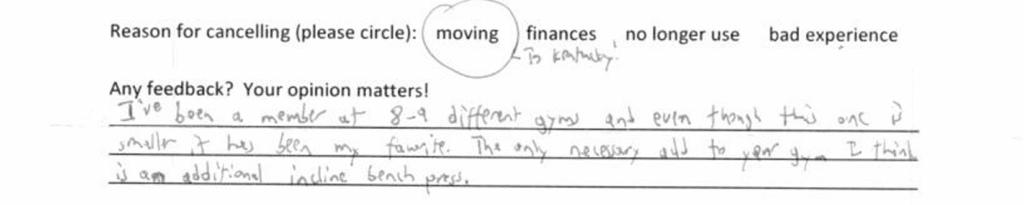 Reason for cancelling (please circle): moving finances no longer use bad experience
To Kentucky.
Any feedback? Your opinion matters!
I've been a member at 8-9 different gyms and even though this one is
smaller it has been my favorite. The only necessary add to your gym I think
is am additional incline bench press.